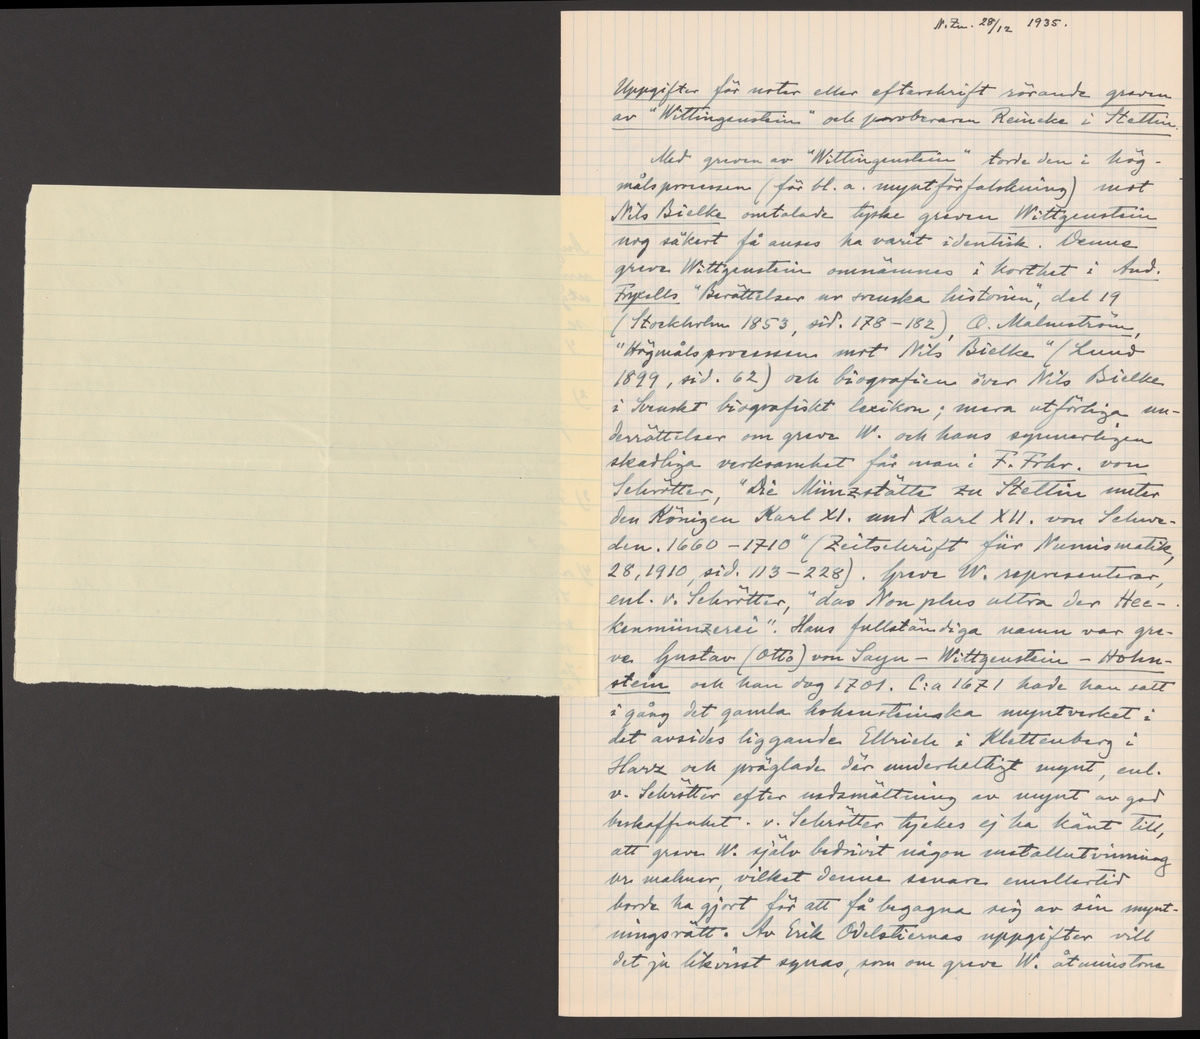 N. Zn. 28/12 1935.
Uppgifter för noter eller efterskrift rörande greven
av "Wittingenstein" och proberaren Reincke i Stettin.
Med greven av "Wittingenstein" torde den i hög-
målsprocessen (för bl. a. myntförfalskning) mot
Nils Bielke omtalade tyske greven Wittgenstein
nog säkert få anses ha varit identisk. Denne
greve Wittgenstein omnämnes i korthet i And.
Fryxells "Berättelser ur svenska historien", del 19
(Stockholm 1853, sid. 178-182), O. Malmström,
"Högmålsprocessen mot Nils Bielke" (Lund
1899, sid. 62) och biografien över Nils Bielke
i Svenskt biografiskt lexikon; mera utförliga un-
derrättelser om greve W. och hans synnerligen
skadliga verksamhet får man i F. Frhr. von
Schrötter, "Die Münzstätte zu Stettin unter
den Königen Karl XI. und Karl XII. von Schwe-
den. 1660-1710" (Zeitschrift für Numismatik,
28, 1910, sid. 113-228). Greve W. representerar,
enl. v. Schrötter, "das Non plus ultra der Hec-
kenmünzerei". Hans fullständiga namn var gre-
ve Gustav (Otto) von Sayn-Wittgenstein-Hohn-
stein och han dog 1701. C:a 1671 hade han satt
i gång det gamla hohensteinska myntverket i
det avsides liggande Ellrich i Klettenberg i
Harz och präglade där underhaltigt mynt, enl.
v. Schrötter efter nedsmältning av mynt av god
beskaffenhet. v. Schrötter tyckes ej ha känt till,
att greve W. själv bedrivit någon metallutvinning
ur malmer, vilket denne senare emellertid
borde ha gjort för att få begagna sig av sin mynt-
ningsrätt. Av Erik Odelstiernas uppgifter vill
det ju likvisst synas, som om greve W. åtminstone